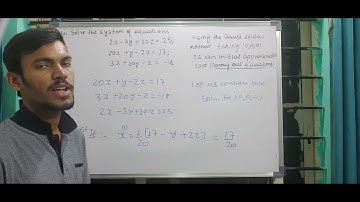 Solve the system of equations
2x-3y+20z=25,
20x+y-2z=17,
3x+20y-z=-18
Using the Gauss seidal
method taking (0,0,0)
as an initial approximate
20x+y-2z=17
3x+20y-z=-18
2x-3y+20z=25
Let us consider Initial
Soln be (0,0,0)
Ist It :- x⁽¹⁾ = 1/20 [17 - y + 2z] = 17/20